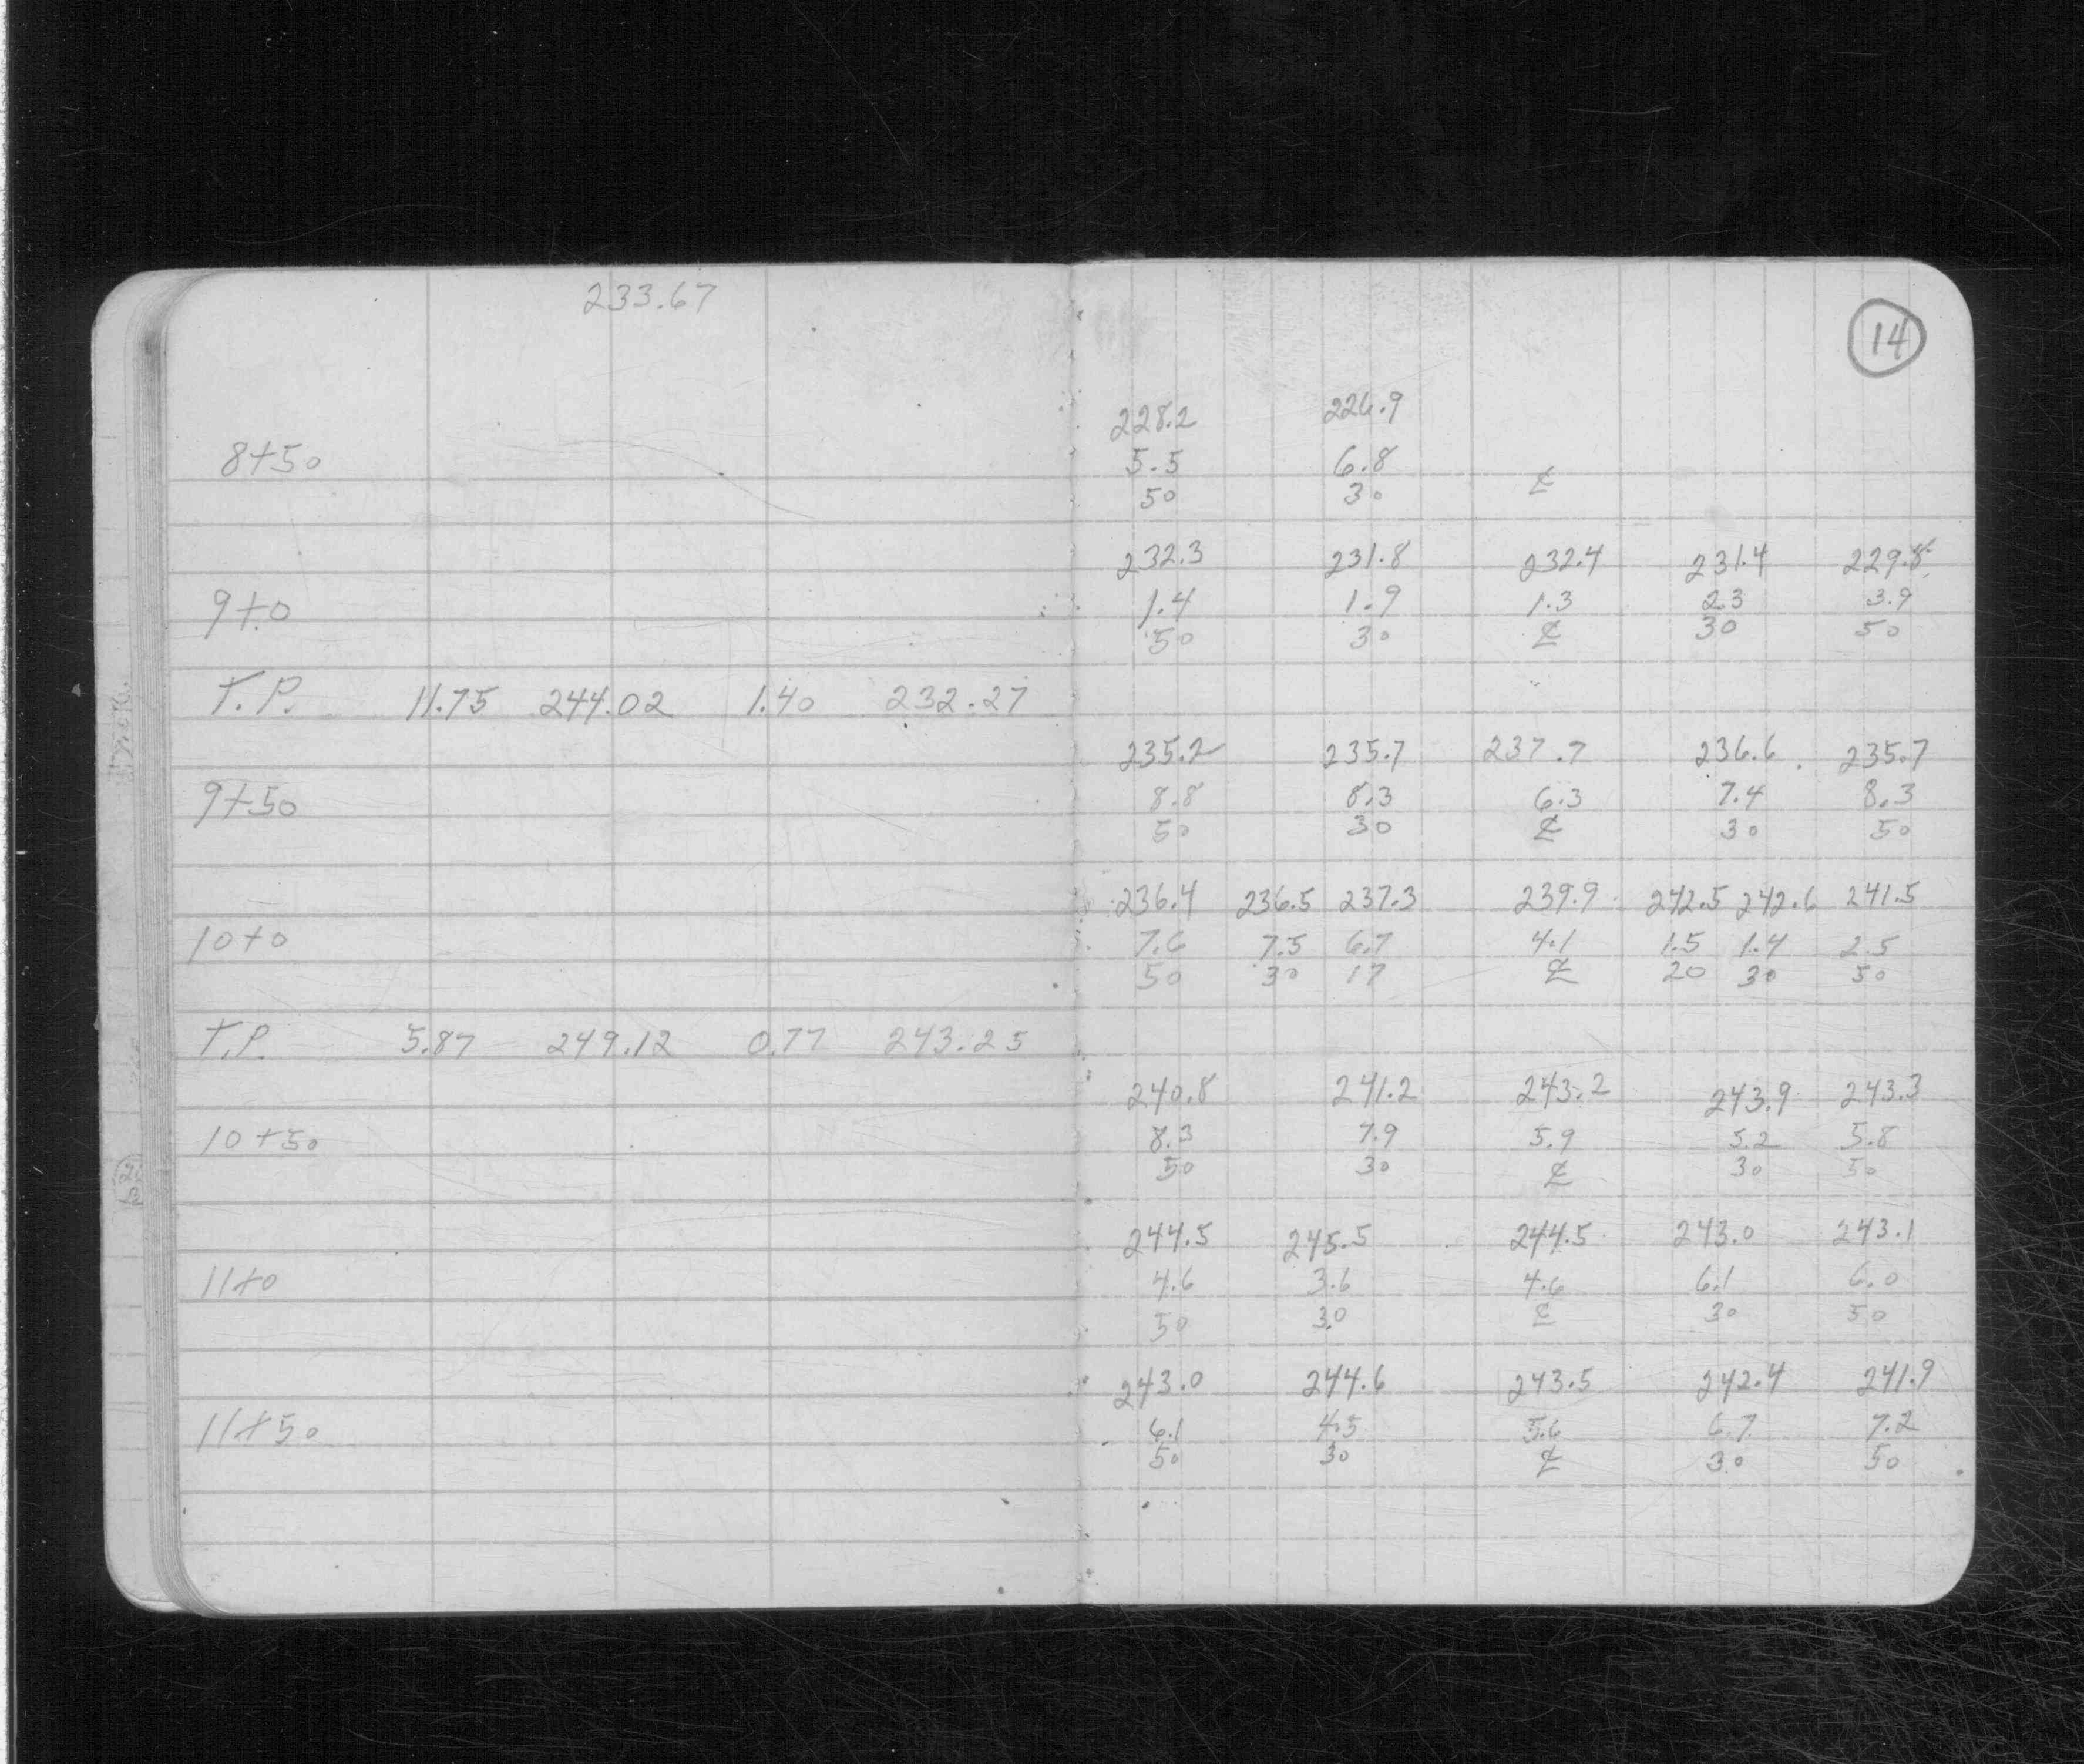 233.67
14
228.2 226.9
8+50 5.5 6.8
50 30 ℄
232.3 231.8 232.4 231.4 229.8
9+0 1.4 1.9 1.3 2.3 3.9
50 30 ℄ 30 50
T.P. 11.75 244.02 1.40 232.27
235.2 235.7 237.7 236.6 235.7
9+50 8.8 8.3 6.3 7.4 8.3
50 30 ℄ 30 50
236.4 236.5 237.3 239.9 242.5 242.6 241.5
10+0 7.6 7.5 6.7 4.1 1.5 1.4 2.5
50 30 17 ℄ 20 30 50
T.P. 5.87 249.12 0.77 243.25
240.8 241.2 243.2 243.9 243.3
10+50 8.3 7.9 5.9 5.2 5.8
50 30 ℄ 30 50
244.5 245.5 244.5 243.0 243.1
11+0 4.6 3.6 4.6 6.1 6.0
50 30 ℄ 30 50
243.0 244.6 243.5 242.4 241.9
11+50 6.1 4.5 5.6 6.7 7.2
50 30 ℄ 30 50